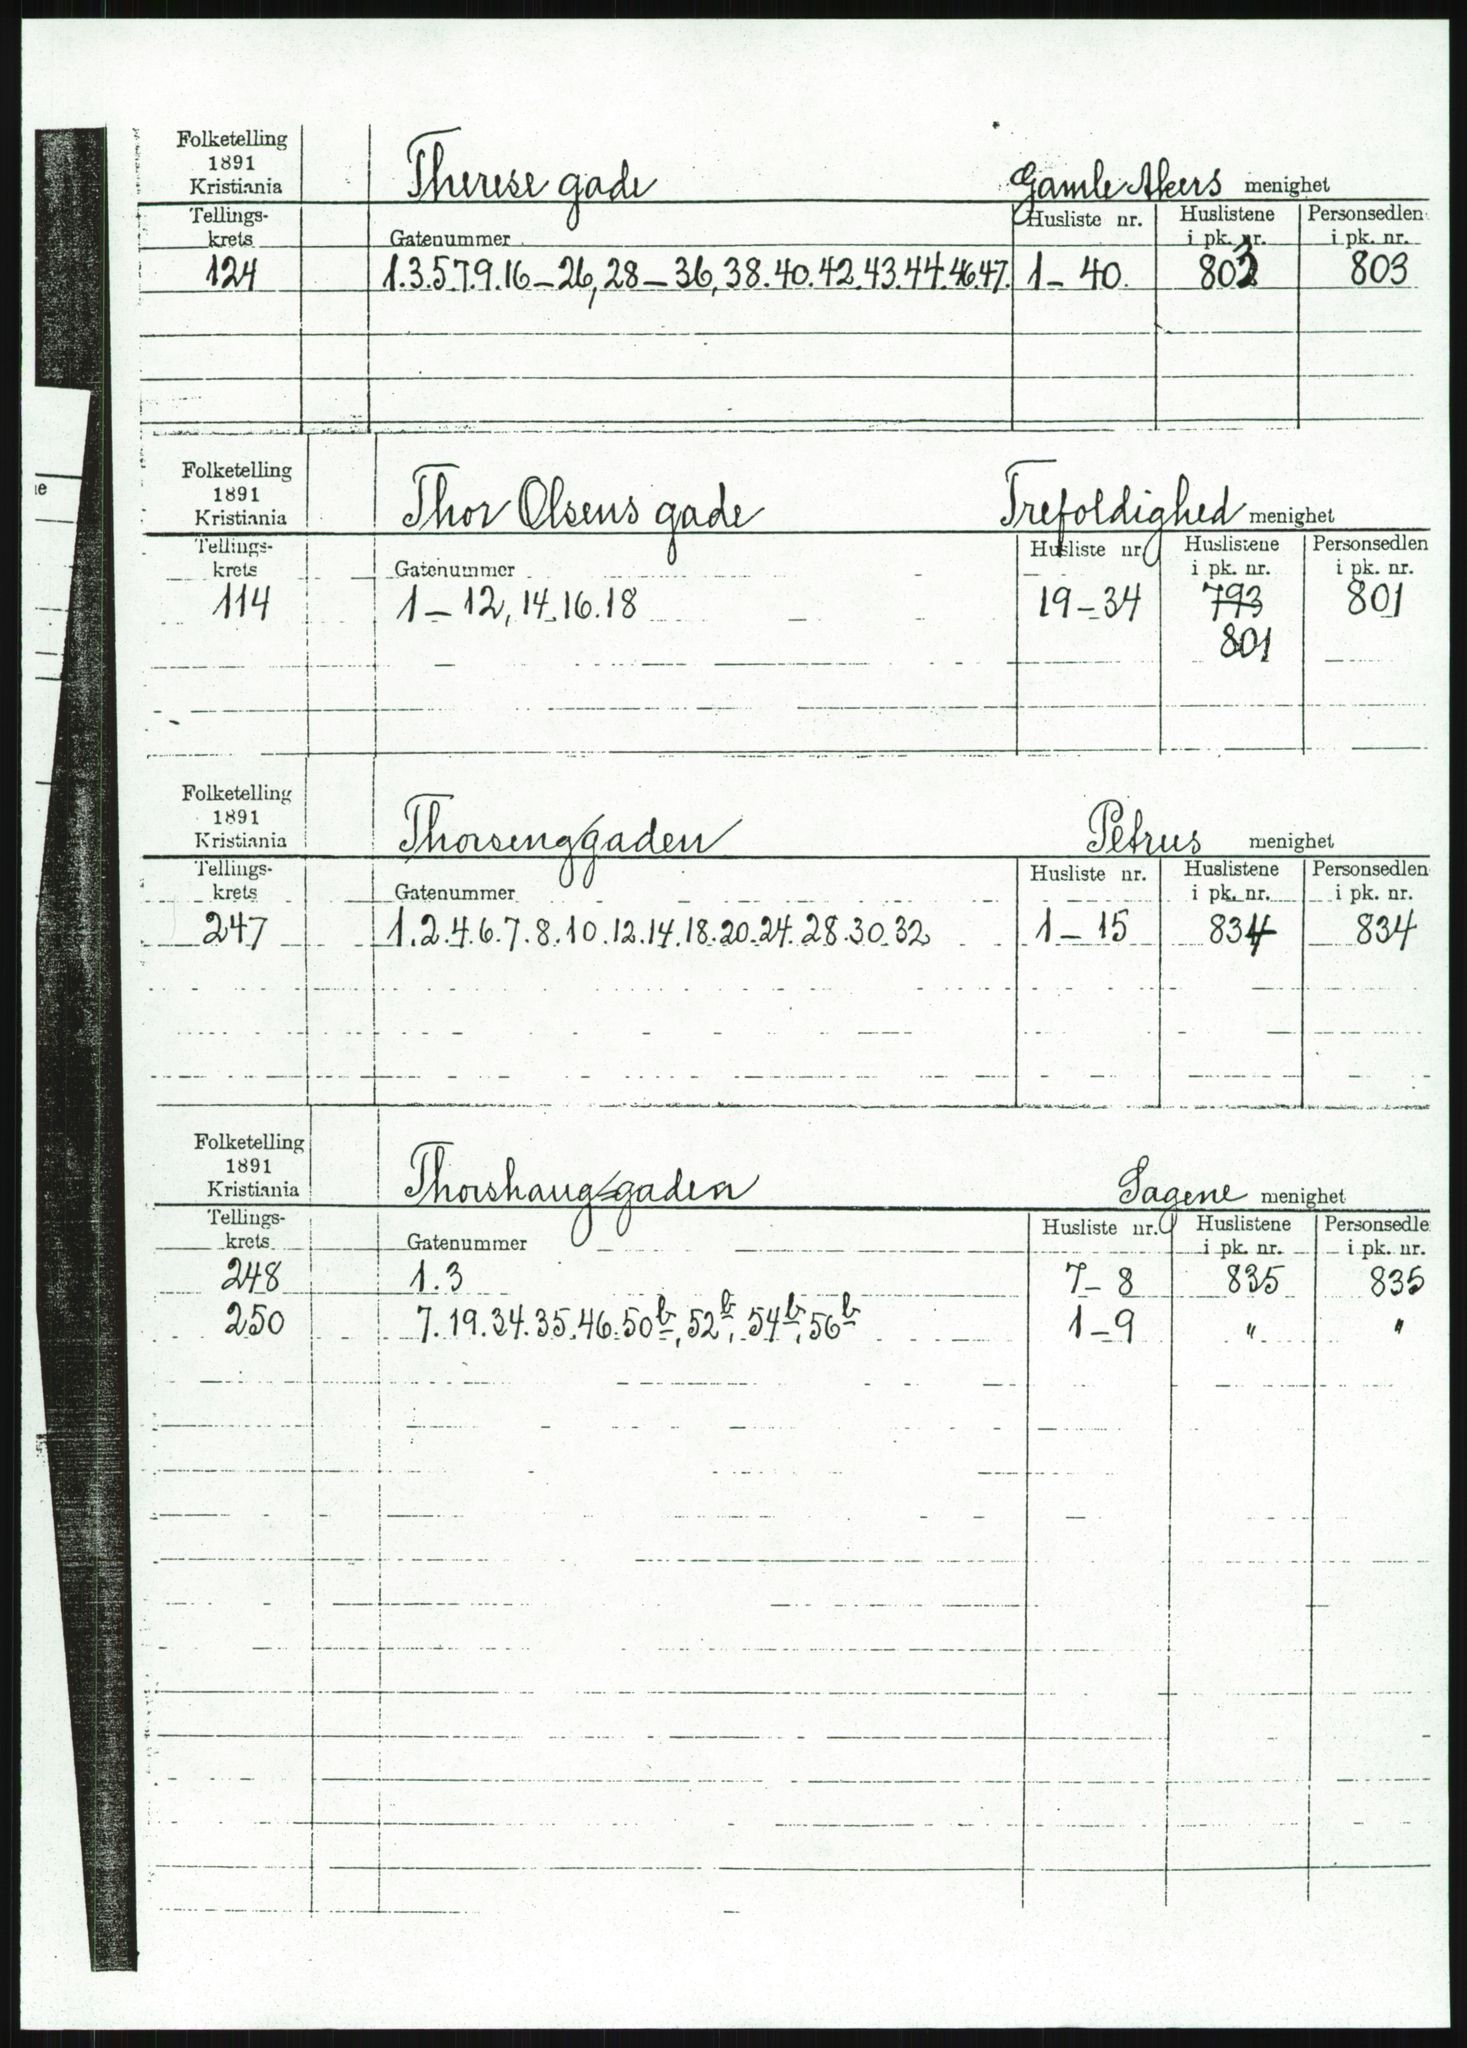 Folketelling
1891
Kristiania
Therese gade
Gamle Akers menighet
Tellings-
krets
Gatenummer
Husliste nr.
Huslistene
i pk. nr.
Personsedlen
i pk. nr.
124 1.3.5.7.9.16-26, 28-36, 38.40.42.43.44.46.47. 1-40. 803 803
Folketelling
1891
Kristiania
Thor Olsens gade
Trefoldighed menighet
Tellings-
krets
Gatenummer
Husliste nr.
Huslistene
i pk. nr.
Personsedlen
i pk. nr.
114 1-12, 14.16.18 19-34 793 801
801
Folketelling
1891
Kristiania
Thorsenggaden
Petrus menighet
Tellings-
krets
Gatenummer
Husliste nr.
Huslistene
i pk. nr.
Personsedlen
i pk. nr.
247 1.2.4.6.7.8.10.12.14.18.20.24.28.30.32 1-15 834 834
Folketelling
1891
Kristiania
Thorshaug=gaden
Sagene menighet
Tellings-
krets
Gatenummer
Husliste nr.
Huslistene
i pk. nr.
Personsedle
i pk. nr.
248 1.3 7-8 835 835
250 7.19.34.35.46.50b, 52b, 54b, 56b 1-9 " "